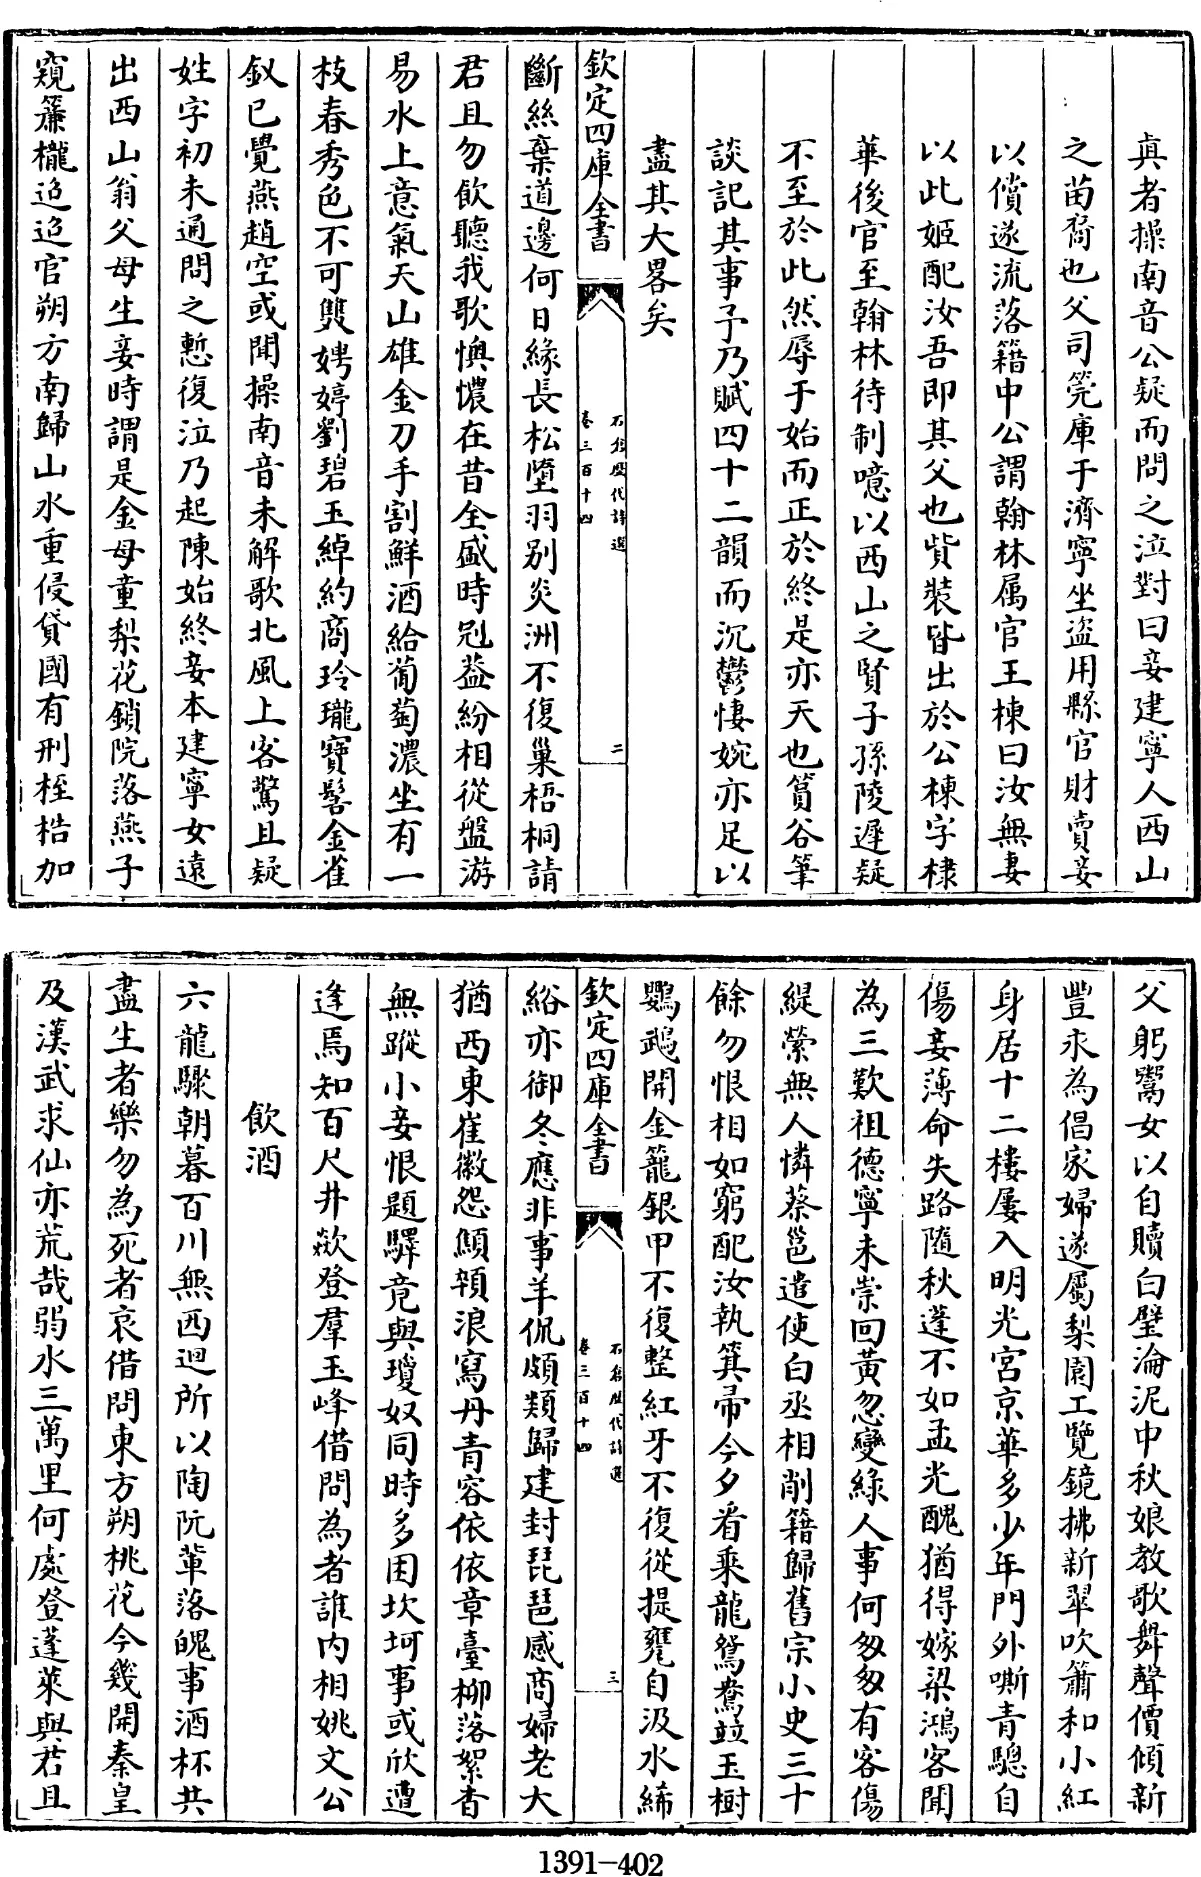 真者操南音公疑而問之泣對曰妾建寧人西山
之苗裔也父司筦庫于濟寧坐盜用縣官財賣妾
以償遂流落籍中公謂翰林屬官王棟曰汝無妻
以此姬配汝吾即其父也貲裝皆出於公棟字棣
華後官至翰林待制噫以西山之賢子孫陵遲疑
不至於此然辱于始而正於終是亦天也篔谷筆
談記其事予乃賦四十二韻而沉鬱悽婉亦足以
盡其大畧矣
欽定四庫全書
石倉歷代詩選
卷三百十四
二
斷絲棄道邊何日緣長松墮羽别炎洲不復巢梧桐請
君且勿飲聽我歌懊憹在昔全盛時冠蓋紛相從盤游
易水上意氣天山雄金刀手割鮮酒給葡萄濃坐有一
枝春秀色不可雙娉婷劉碧玉綽約商玲瓏寶髻金雀
釵已覺燕趙空或聞操南音未解歌北風上客驚且疑
姓字初未通問之慙復泣乃起陳始終妾本建寧女遠
出西山翁父母生妾時謂是金母童梨花鎖院落燕子
窺簾櫳迨迨官朔方南歸山水重侵貸國有刑桎梏加
父躬鬻女以自贖白璧淪泥中秋娘教歌舞聲價傾新
豐永為倡家婦遂屬梨園工覽鏡拂新翠吹簫和小紅
身居十二樓屢入明光宫京華多少年門外嘶青驄自
傷妾薄命失路隨秋蓬不如孟光醜猶得嫁梁鴻客聞
為三歎祖德寧未崇回黃忽變綠人事何匆匆有客傷
緹縈無人憐蔡邕遣使白丞相削籍歸舊宗小史三十
餘勿恨相如窮配汝執箕帚今夕看乘龍鴛鴦竝玉樹
鸚鵡開金籠銀甲不復整紅牙不復從提甕自汲水絺
欽定四庫全書
石倉歷代詩選
卷三百十四
三
綌亦御冬應非事羊侃頗類歸建封琵琶感商婦老大
猶西東崔徽怨顦顇浪寫丹青容依依章臺柳落絮杳
無蹤小妾恨題驛竟與瓊奴同時多困坎坷事或欣遭
逢焉知百尺井歘登羣玉峰借問為者誰内相姚文公
飲酒
六龍驟朝暮百川無西迴所以陶阮輩落魄事酒杯共
盡生者樂勿為死者哀借問東方朔桃花今幾開秦皇
及漢武求仙亦荒哉弱水三萬里何處登蓬萊與君且
1391-402